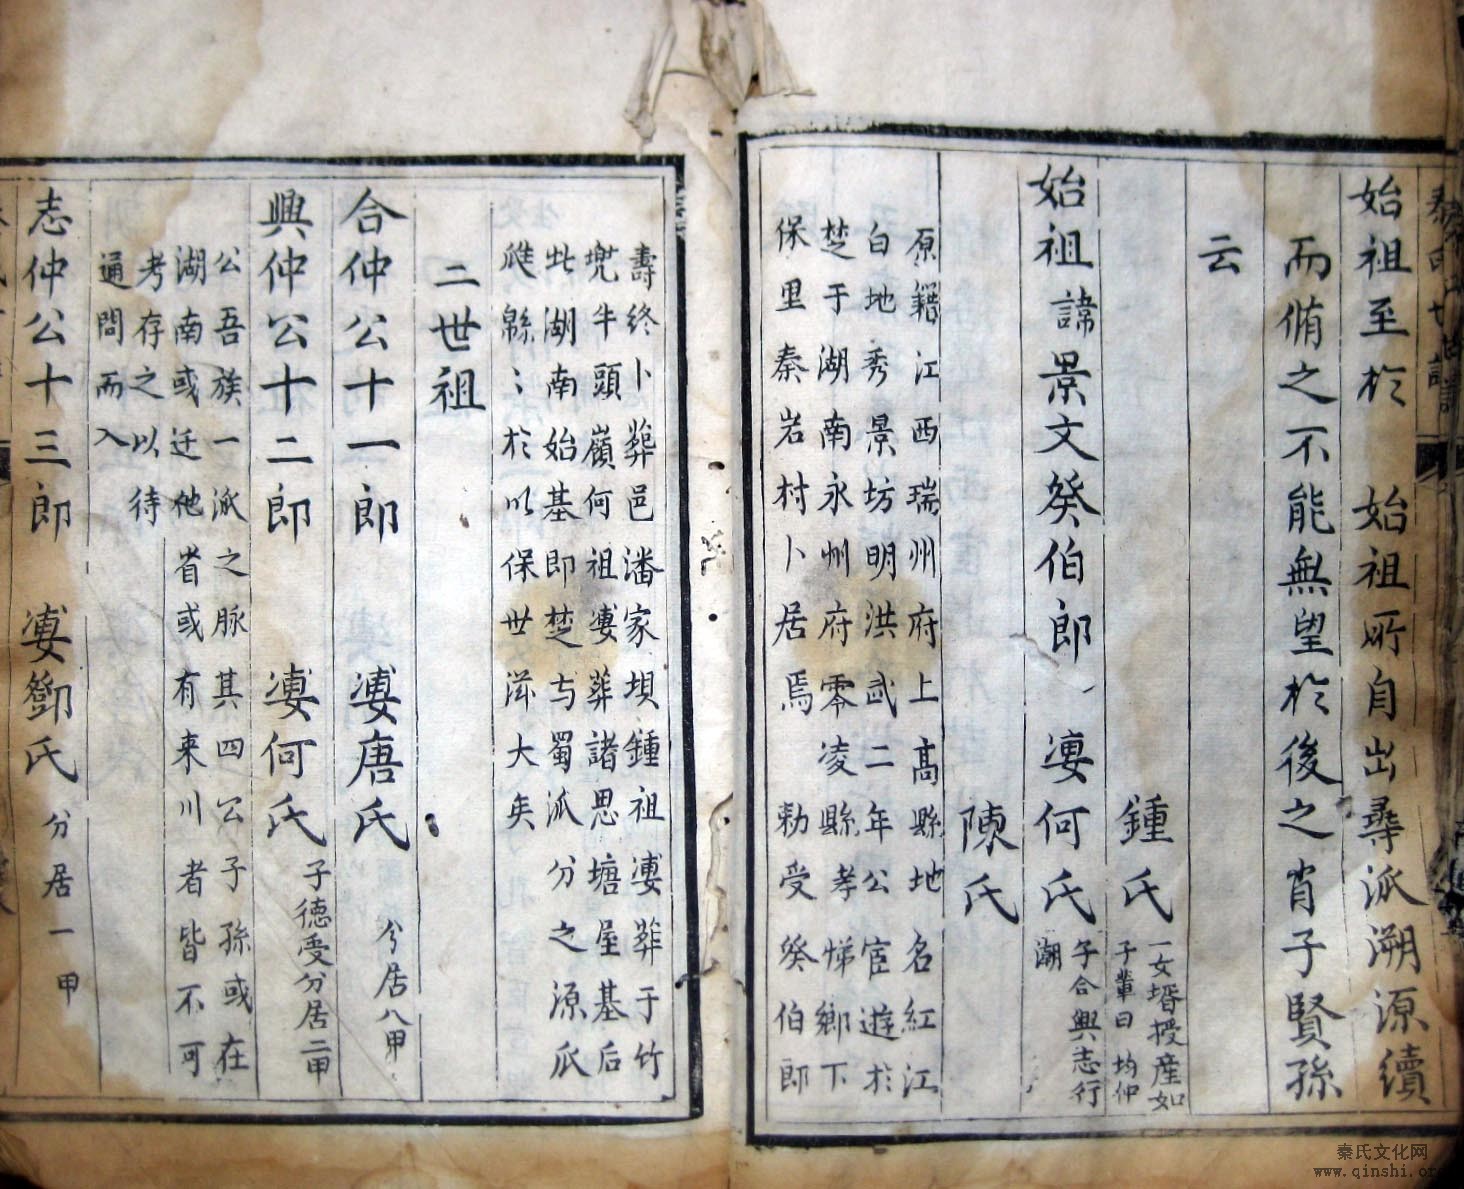 始祖至於 始祖所自出尋派溯源續
而脩之不能無望於後之肖子賢孫
云
鍾氏 一女壻授産如
子輩曰 均仲
始祖諱景文癸伯郎 娶何氏 子合興志行
潮
陳氏
原籍江西瑞州府上高縣地名紅江
白地秀景坊明洪武二年公宦遊於
楚于湖南永州府零凌縣孝悌鄉下
保里秦岩村卜居焉 勅受癸伯郎
壽終卜葬邑潘家坝鍾祖婆葬于竹
兜牛頭嶺何祖婆葬諸思塘屋基后
此湖南始基即楚与蜀派分之源瓜
瓞緜〻於以保世滋大矣
二世祖
合仲公十一郎 娶唐氏 分居八甲
興仲公十二郎 娶何氏 子德受分居二甲
公吾族一派之脉其四公子孫或在
湖南或迁他省或有来川者皆不可
考存之以待
通問而入
志仲公十三郎 娶鄧氏 分居一甲
秦氏文化网
www.qinshi.org